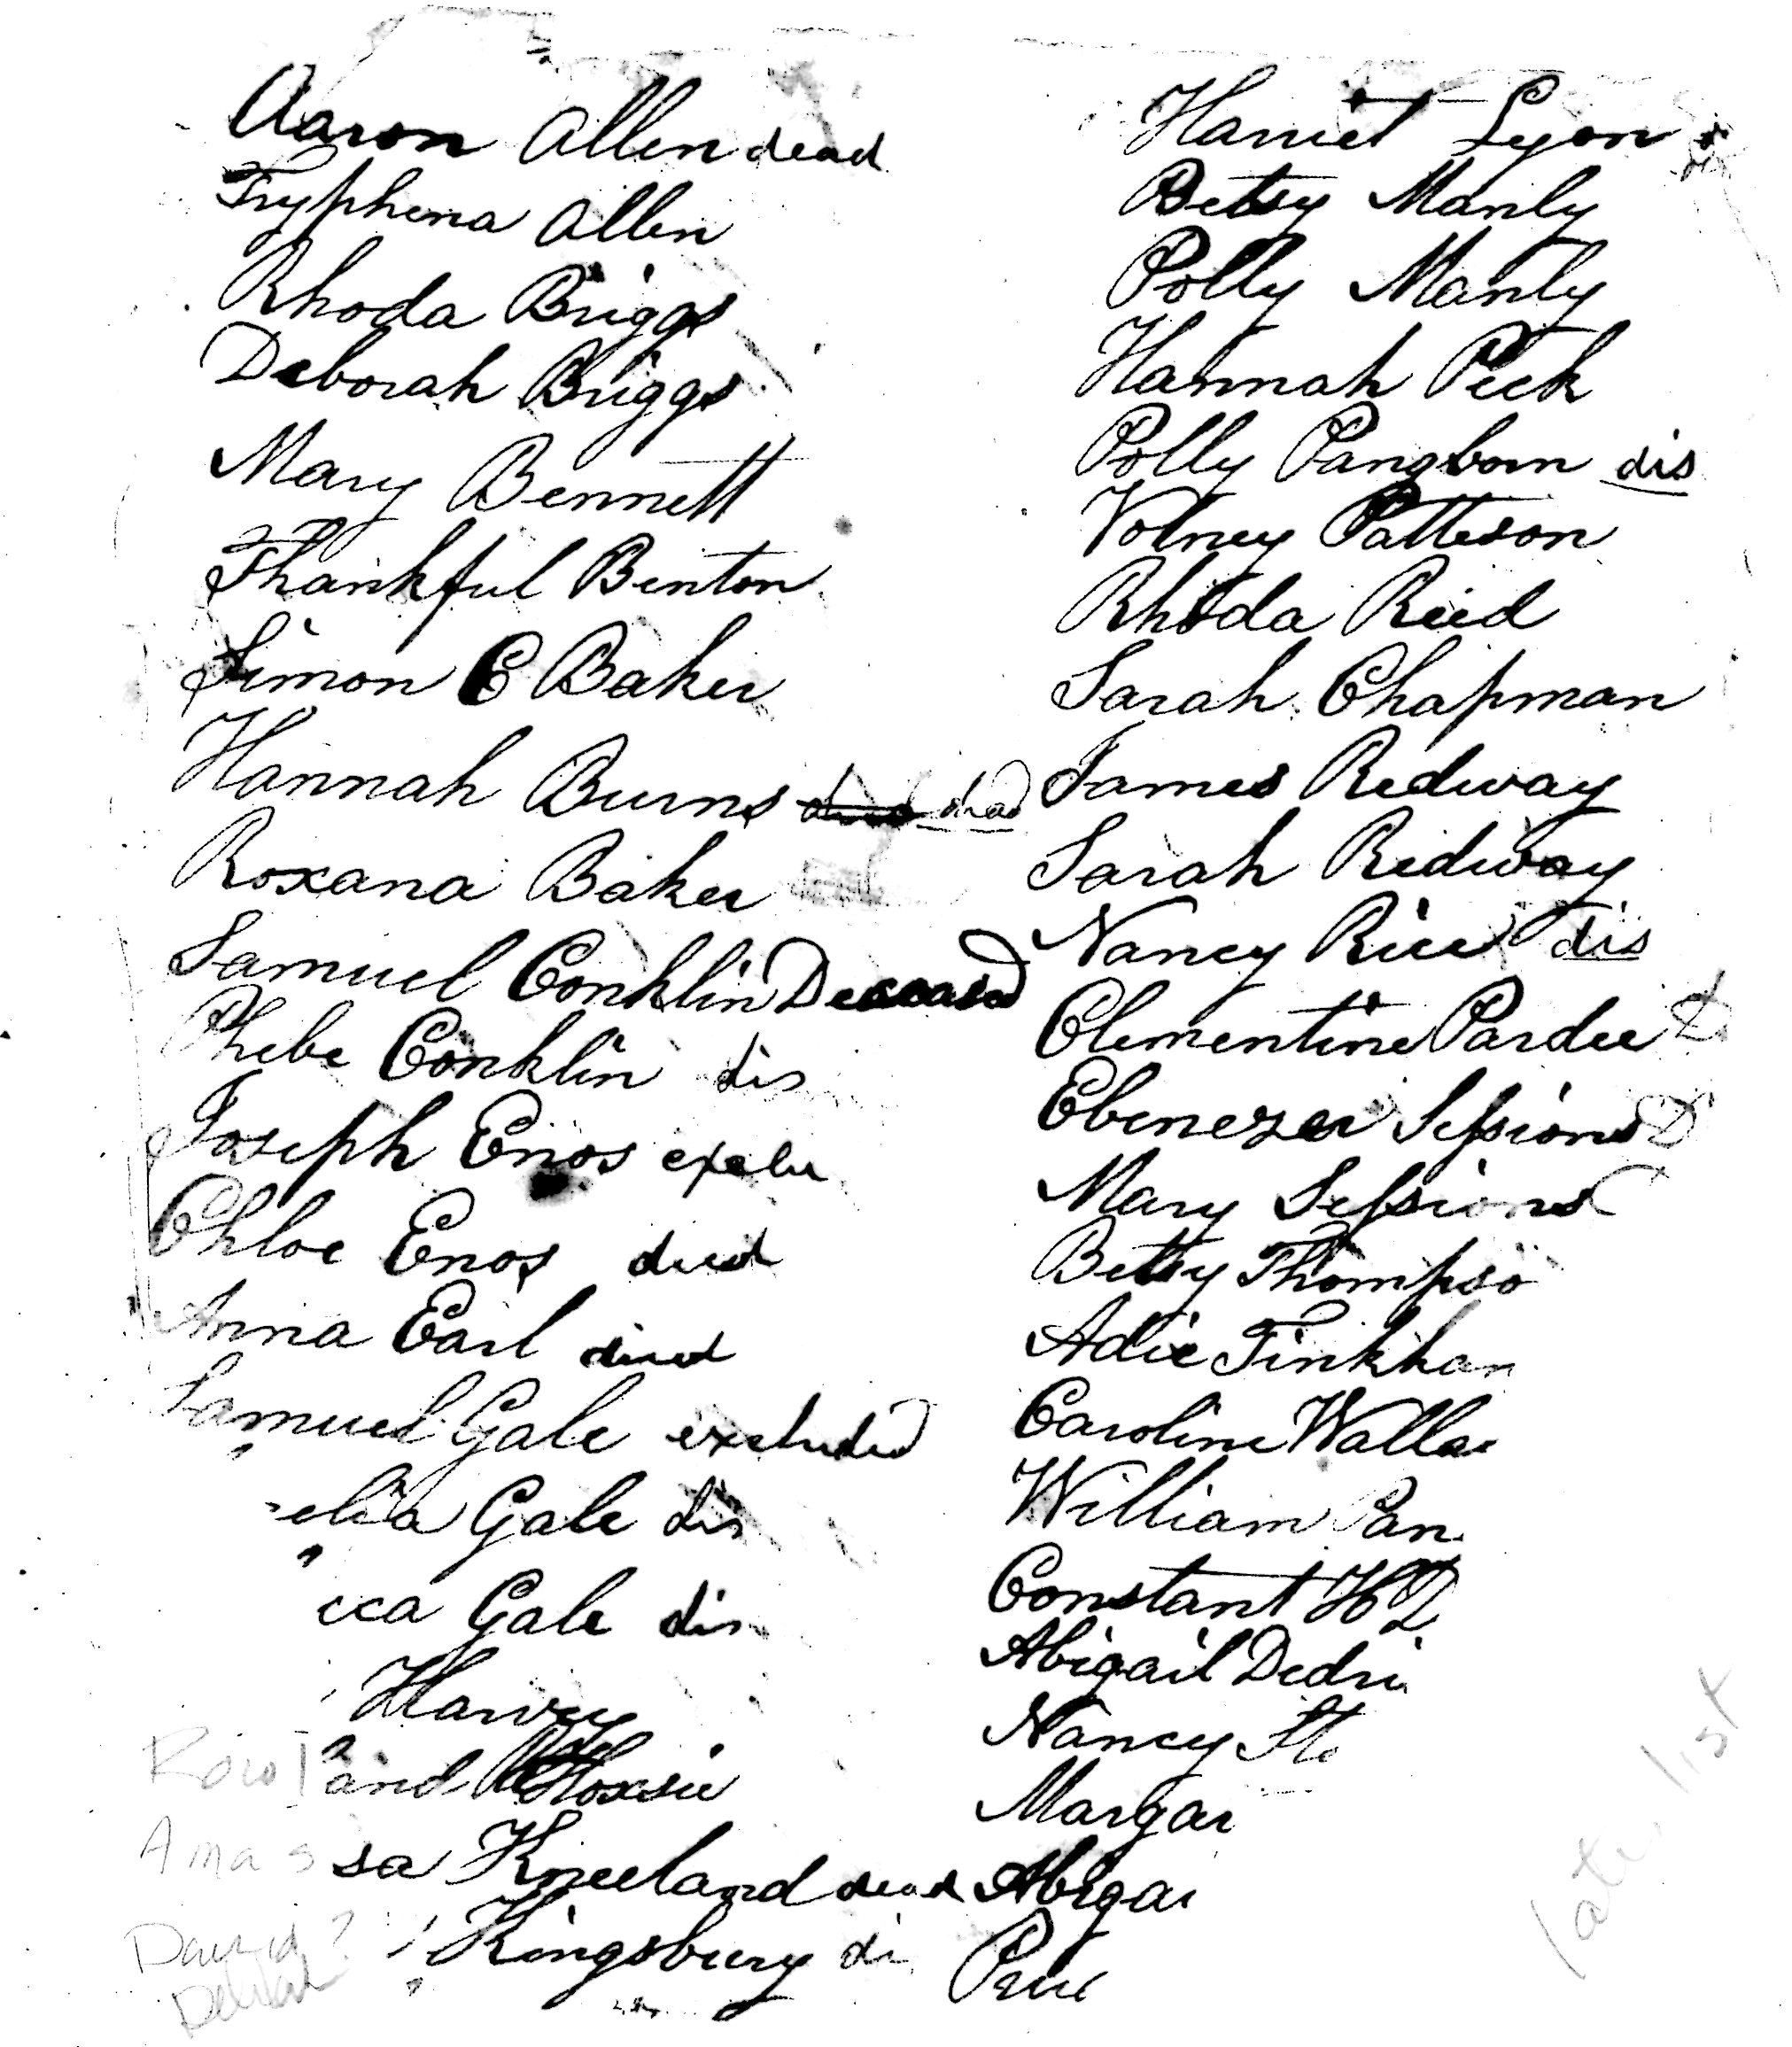 Aaron Allen dead
Tryphena Allen
Rhoda Briggs
Deborah Briggs
Mary Bennett
Thankful Benton
Simon C Baker
Hannah Burns dead
Roxana Baker
Samuel Conklin Deceased
Phebe Conklin dis
Joseph Enos exclu
Chloe Enos died
Anna Earl died
Samuel Gale excluded
elia Gale dis
cca Gale dis
Harvey
Rowland Hoxsie
Amassa Kneeland dead
David? Kingsbury di
Harriet Lyon
Betsy Manly
Polly Manly
Hannah Peck
Polly Pangborn dis
Volney Patteson
Rhoda Reed
Sarah Chapman
James Redway
Sarah Redway
Nancy Rice dis
Clementine Pardee
Ebenezer Sessions D
Mary Sessions
Betsy Thompso
Adie Tinkham
Caroline Walla
William Pan
Constant H D
Abigail Dedri
Nancy Sto
Margar
Abigai
later list